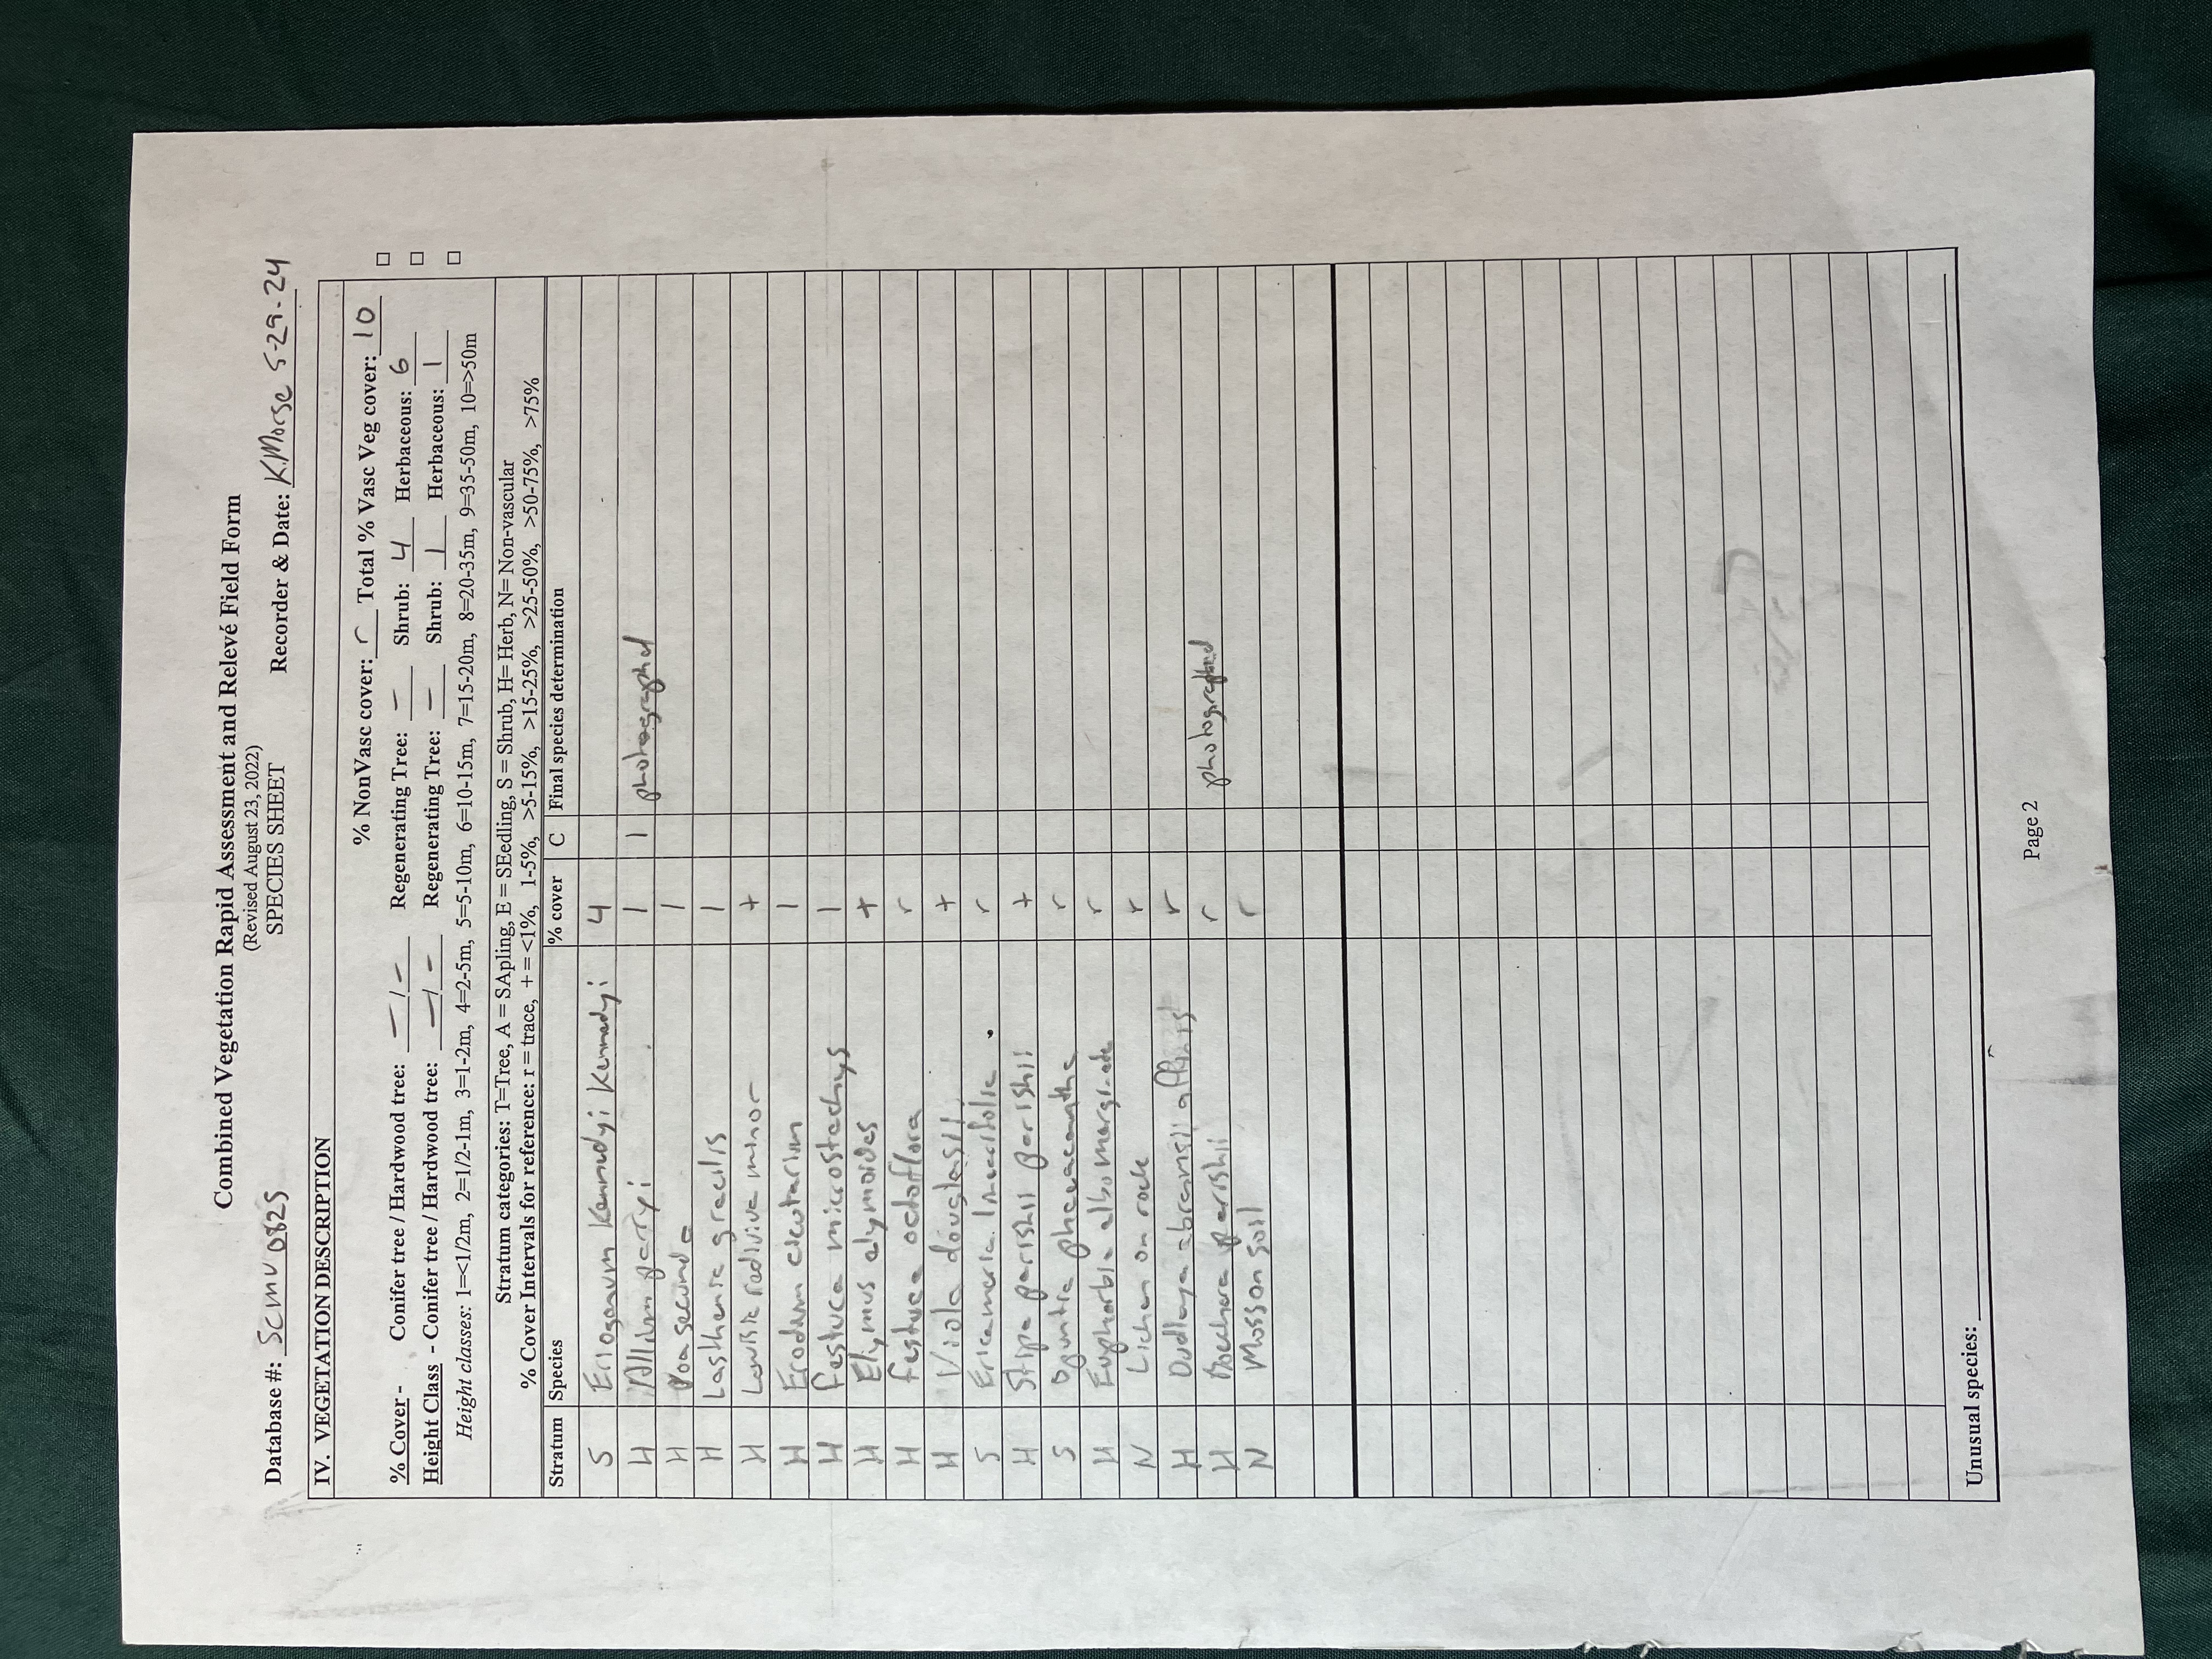 Combined Vegetation Rapid Assessment and Relevé Field Form
(Revised August 23, 2022)
SPECIES SHEET
Database #: Scmu0825 Recorder & Date: K.Morse 5-29-24
IV. VEGETATION DESCRIPTION
% NonVasc cover: r Total % Vasc Veg cover: 10
% Cover - Conifer tree / Hardwood tree: - / - Regenerating Tree: - Shrub: 4 Herbaceous: 6
Height Class - Conifer tree / Hardwood tree: - / - Regenerating Tree: - Shrub: 1 Herbaceous: 1
Height classes: 1=<1/2m, 2=1/2-1m, 3=1-2m, 4=2-5m, 5=5-10m, 6=10-15m, 7=15-20m, 8=20-35m, 9=35-50m, 10=>50m
Stratum categories: T=Tree, A = SApling, E = SEedling, S = Shrub, H= Herb, N= Non-vascular
% Cover Intervals for reference: r = trace, + = <1%, 1-5%, >5-15%, >15-25%, >25-50%, >50-75%, >75%
Stratum Species % cover C Final species determination
S Eriogonum Kennedyi Kennedyi 4
H Allium parryi 1 1 photographed
H Poa secunda 1
H Lasthenia gracilis 1
H Lewisia rediviva minor +
H Erodium cicutarium 1
H festuca microstachys 1
H Elymus elymoides +
H festuca octoflora r
H Viola douglasii +
S Ericameria linearifolia r
H Stipa parishii parishii +
S Opuntia phaeacantha r
H Euphorbia albomarginata r
N Lichen on rock r
H Dudleya abramsii affinis r
H Boechera parishii r photographed
N Moss on soil r
Unusual species:
Page 2